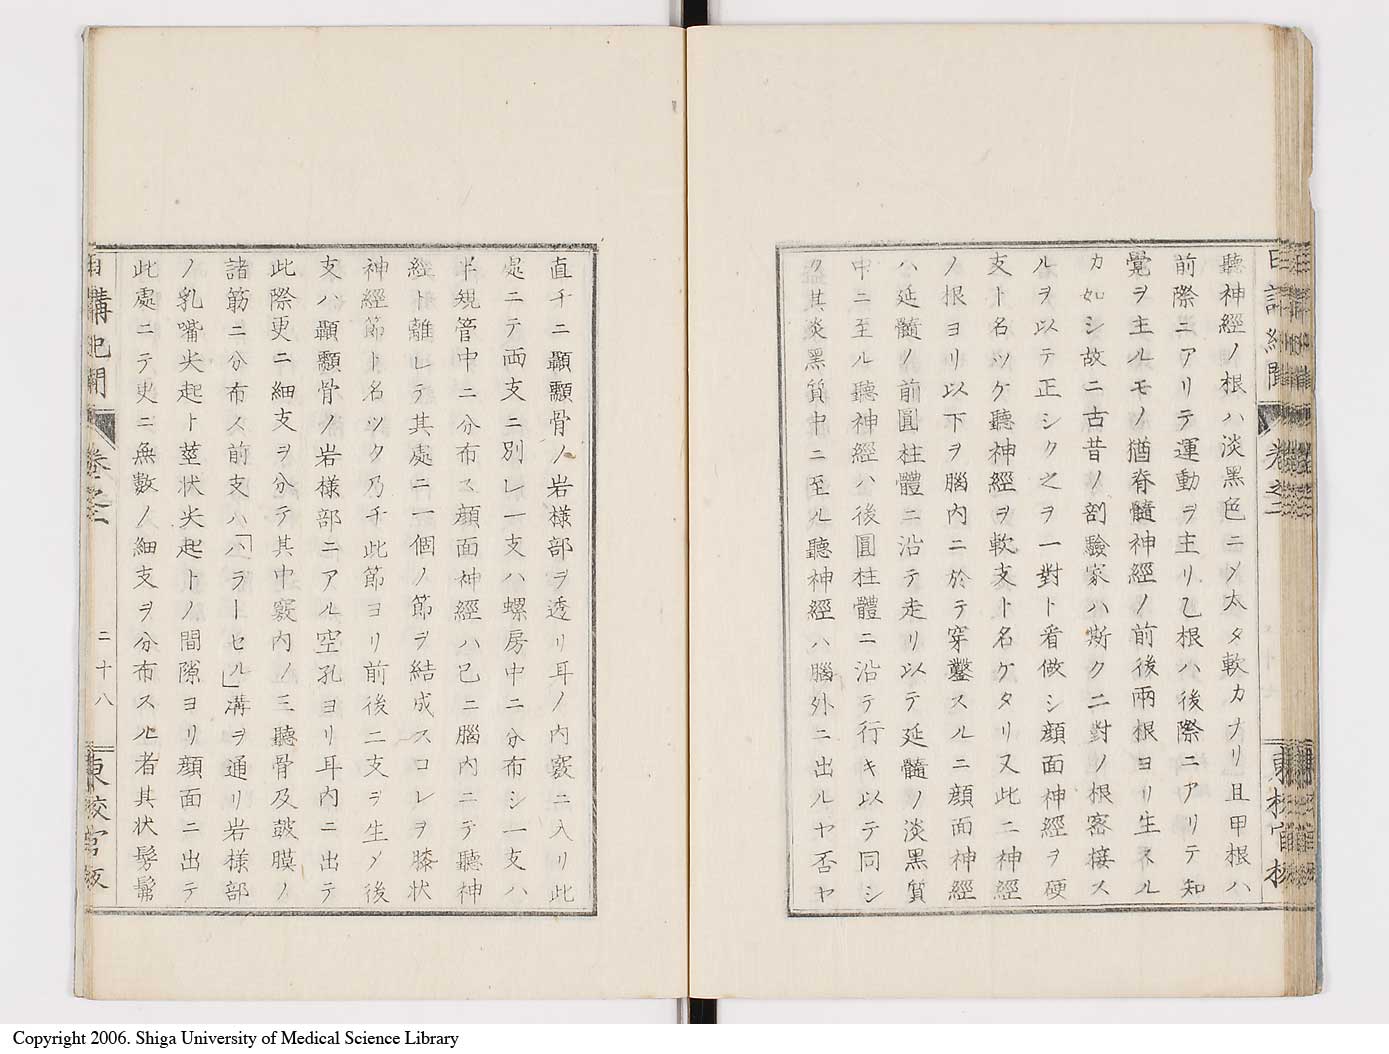 聽神經ノ根ハ淡黑色ニメ太タ軟カナリ且甲根ハ
前際ニアリテ運動ヲ主リ乙根ハ後際ニアリテ知
覺ヲ主ルモノ猶脊髓神經ノ前後兩根ヨリ生スル
カ如シ故ニ古昔ノ剖驗家ハ斯ク二對ノ根密接ス
ルヲ以テ正シク之ヲ一對ト看做シ顔面神經ヲ硬
支ト名ツケ聽神經ヲ軟支ト名ケタリ又此二神經
ノ根ヨリ以下ヲ腦内ニ於テ穿鑿スルニ顔面神經
ハ延髓ノ前圓柱體ニ沿テ走リ以テ延髓ノ淡黑質
中ニ至ル聽神經ハ後圓柱體ニ沿テ行キ以テ同シ
ク其淡黑質中ニ至ル聽神經ハ腦外ニ出ルヤ否ヤ
卷之二
東校官板
直チニ顳顬骨ノ岩様部ヲ透リ耳ノ内竅ニ入リ此
處ニテ両支ニ別レ一支ハ螺房中ニ分布シ一支ハ
半規管中ニ分布ス顔面神經ハ已ニ腦内ニテ聽神
經ト離レテ其處ニ一個ノ節ヲ結成スコレヲ膝状
神經節ト名ツク乃チ此節ヨリ前後二支ヲ生メ後
支ハ顳顬骨ノ岩様部ニアル空孔ヨリ耳内ニ出テ
此際更ニ細支ヲ分テ其中竅内ノ三聽骨及皷膜ノ
諸筋ニ分布ス前支ハ「ハラトセル」溝ヲ通リ岩様部
ノ乳嘴尖起ト莖状尖起トノ間隙ヨリ顔面ニ出テ
此處ニテ更ニ無數ノ細支ヲ分布スル者其状髣髴
日講記聞
卷之二
二十八
東校官板
Copyright 2006. Shiga University of Medical Science Library